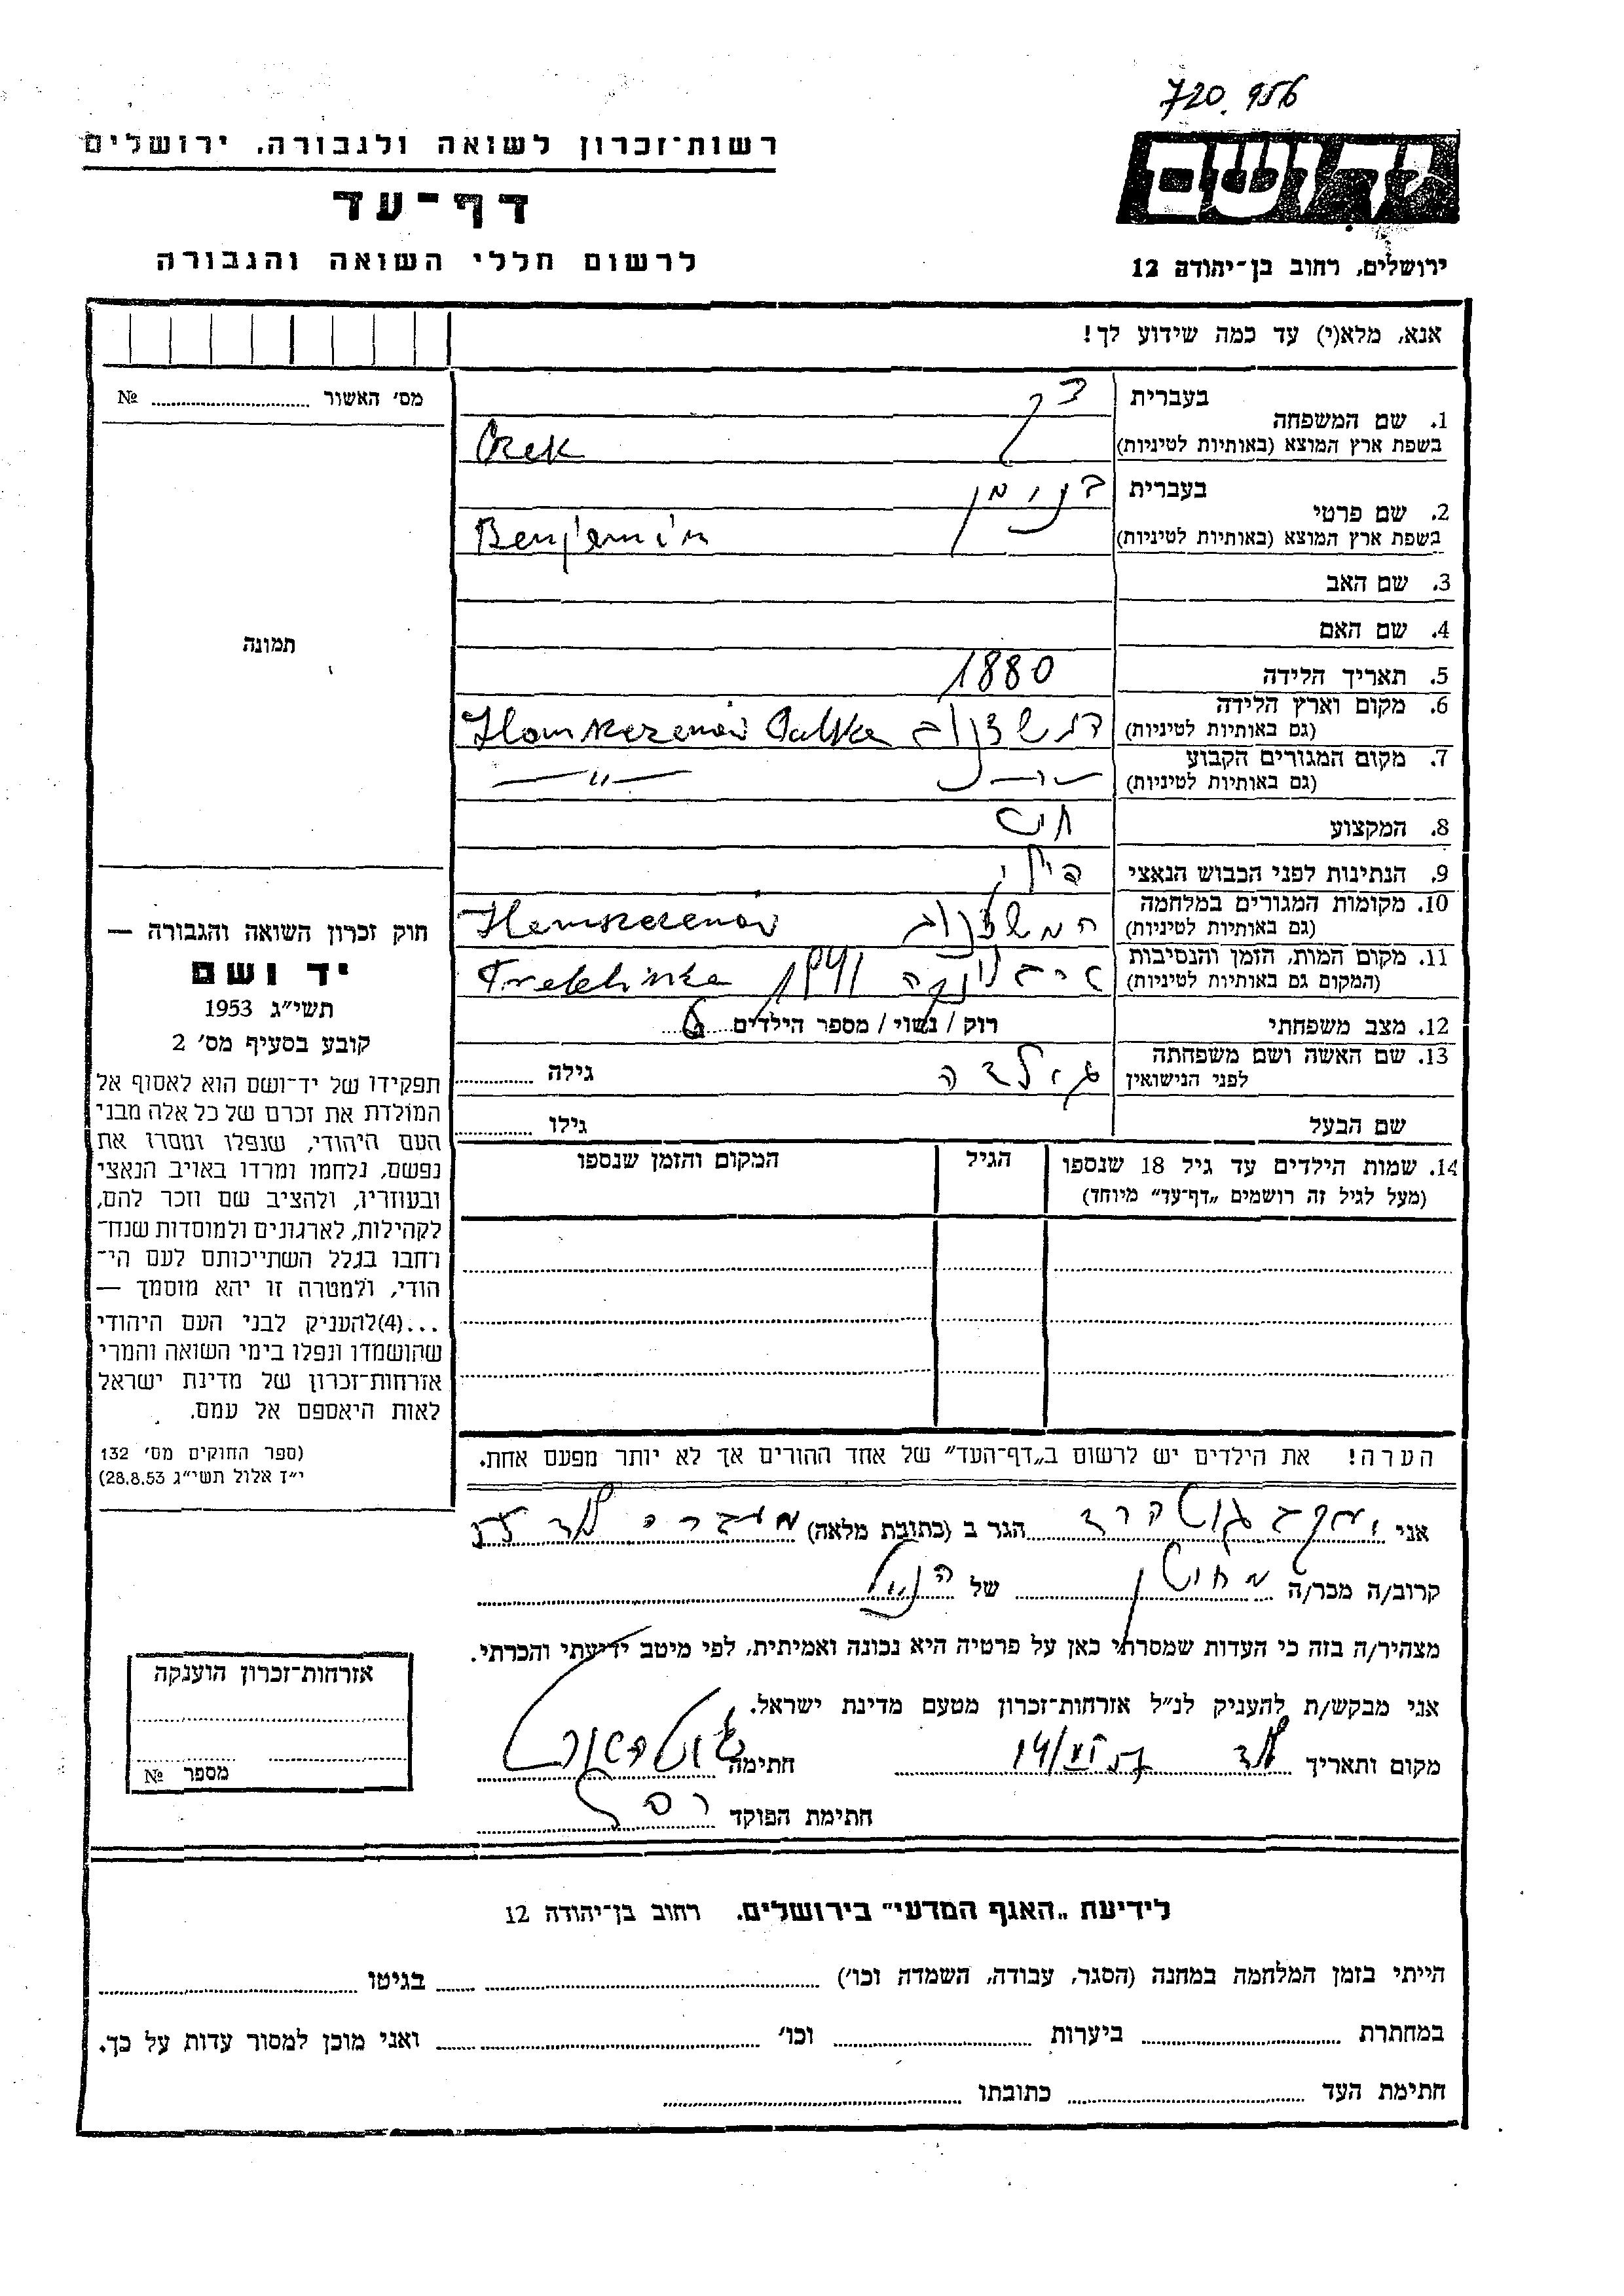 720.956
יד ושם
רשות־זכרון לשואה ולגבורה, ירושלים
דף־עד
לרשום חללי השואה והגבורה
ירושלים, רחוב בן־יהודה 12
אנא, מלא(י) עד כמה שידוע לך!
מס׳ האשור № 
1. שם המשפחה
בעברית
בשפת ארץ המוצא (באותיות לטיניות)
2. שם פרטי
בעברית בנימין
בשפת ארץ המוצא (באותיות לטיניות) Benjamin
3. שם האב
4. שם האם
5. תאריך הלידה 1880
6. מקום וארץ הלידה
(גם באותיות לטיניות)
7. מקום המגורים הקבוע
(גם באותיות לטיניות) —״—
8. המקצוע
9. הנתינות לפני הכבוש הנאצי
10. מקומות המגורים במלחמה
(גם באותיות לטיניות)
11. מקום המות, הזמן והנסיבות
(המקום גם באותיות לטיניות) 1941
12. מצב משפחתי רוק / נשוי / מספר הילדים 6
13. שם האשה ושם משפחתה
לפני הנישואין גולדה גילה
שם הבעל גילו
14. שמות הילדים עד גיל 18 שנספו הגיל המקום והזמן שנספו
(מעל לגיל זה רושמים „דף־עד״ מיוחד)
הערה! את הילדים יש לרשום ב„דף־העד״ של אחד ההורים אך לא יותר מפעם אחת.
תמונה
חוק זכרון השואה והגבורה —
יד ושם
תשי״ג 1953
קובע בסעיף מס׳ 2
תפקידו של יד־ושם הוא לאסוף אל
המולדת את זכרם של כל אלה מבני
העם היהודי, שנפלו ומסרו את
נפשם, נלחמו ומרדו באויב הנאצי
ובעוזריו, ולהציב שם וזכר להם,
לקהילות, לארגונים ולמוסדות שנח־
רחבו בגלל השתייכותם לעם הי־
הודי, ולמטרה זו יהא מוסמך —
...(4)להעניק לבני העם היהודי
שהושמדו ונפלו בימי השואה והמרי
אזרחות־זכרון של מדינת ישראל
לאות היאספם אל עמם.
(ספר החוקים מס׳ 132
י״ד אלול תשי״ג 28.8.53)
אני יעקב הגר ב (כתובת מלאה) מעברה לוד
קרוב/ה מכר/ה מחותן של הנ״ל
מצהיר/ה בזה כי העדות שמסרתי כאן על פרטיה היא נכונה ואמיתית, לפי מיטב ידיעתי והכרתי.
אני מבקש/ת להעניק לנ״ל אזרחות־זכרון מטעם מדינת ישראל.
מקום ותאריך לוד חתימה
חתימת הפוקד
אזרחות־זכרון הוענקה
מספר №
לידיעת „האגף המדעי״ בירושלים, רחוב בן־יהודה 12
הייתי בזמן המלחמה במחנה (הסגר, עבודה, השמדה וכו׳) בגיטו
במחתרת ביערות וכו׳ ואני מוכן למסור עדות על כך.
חתימת העד כתובתו